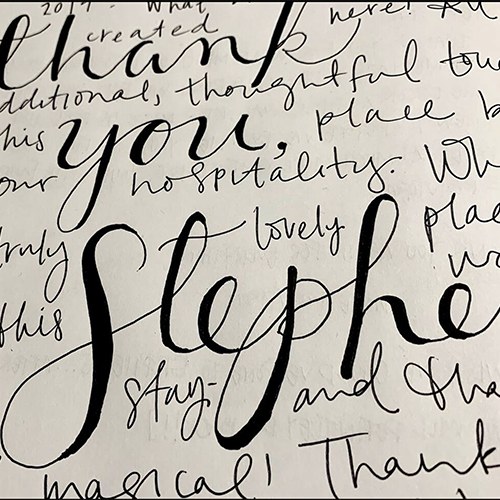 2019. What here!
created
thank
additional, thoughtful
this you, place
our hospitality.
truly lovely
this Stephe
stay- and
magical! Thank